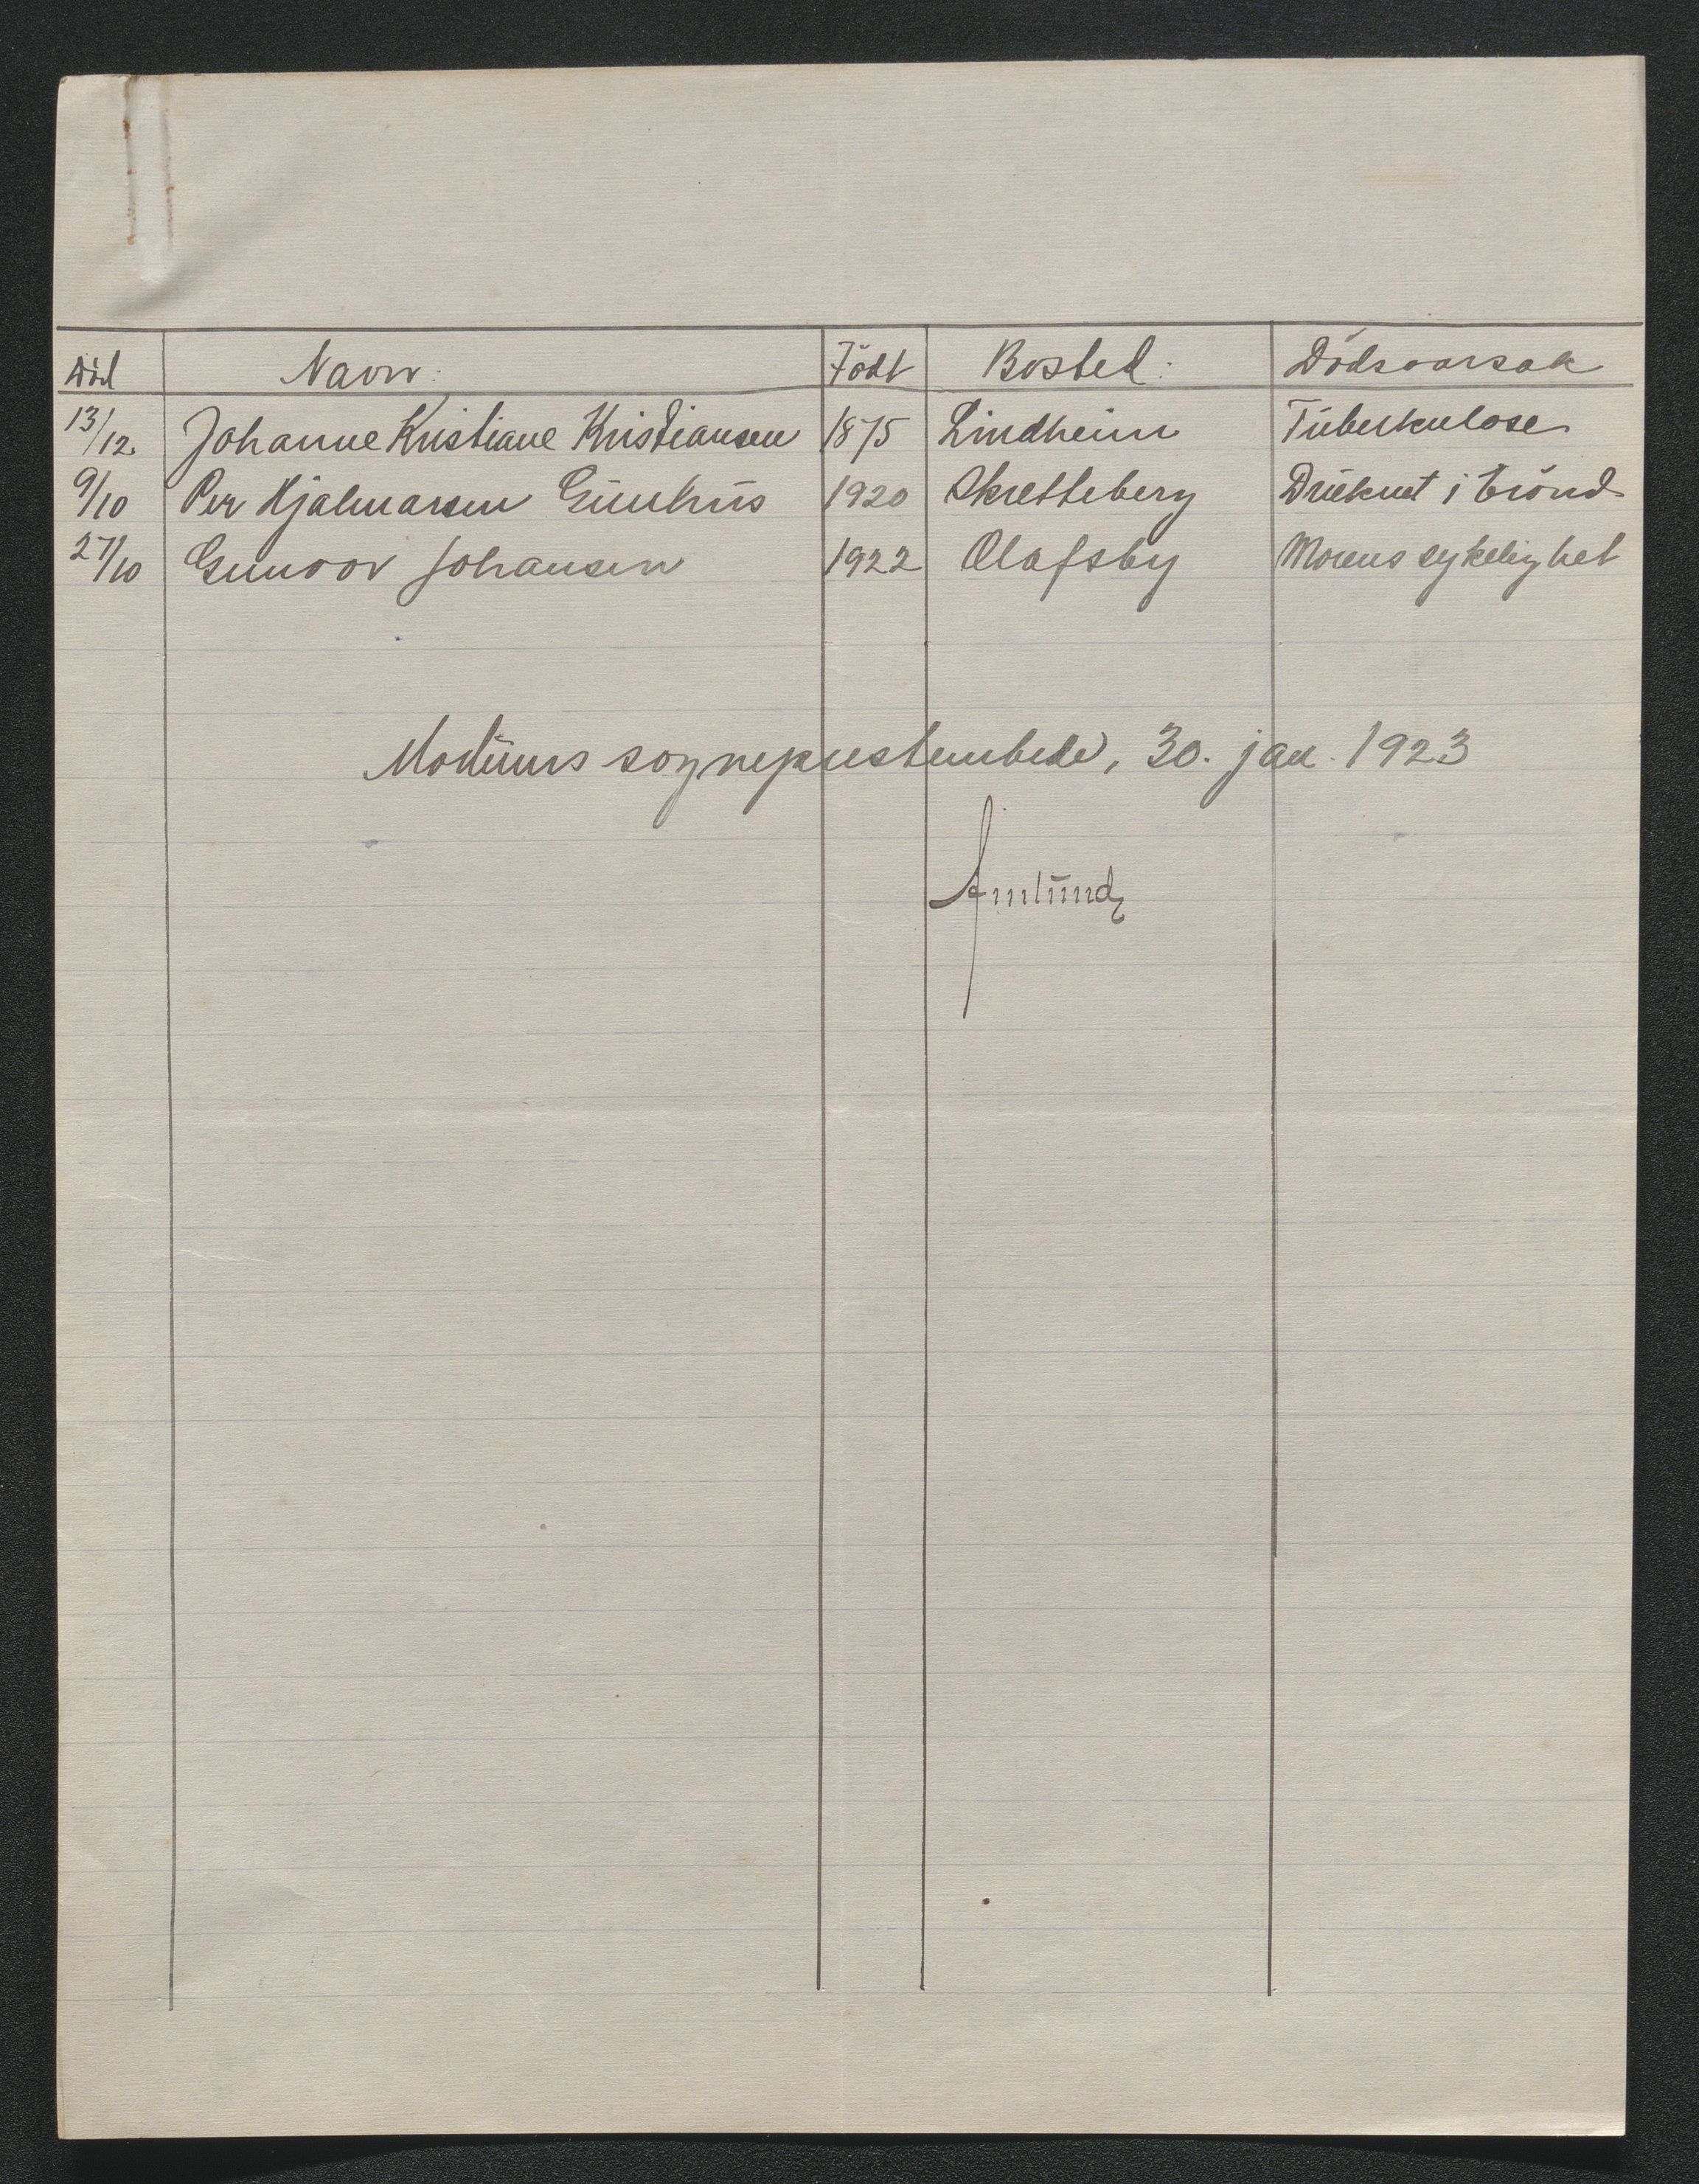 Død Navn: Født Bosted: Dødsaarsak
13/12. Johanne Kristiane Kristiansen 1875 Lindheim Tuberkulose
9/10 Per Hjalmarsen Gunhus 1920 Skretteberg Druknet i brønd
27/10 Gunvor Johansen 1922 Olafsby Morens sykelighet
Modums sogneprestembede, 30. jan. 1923
Amlund